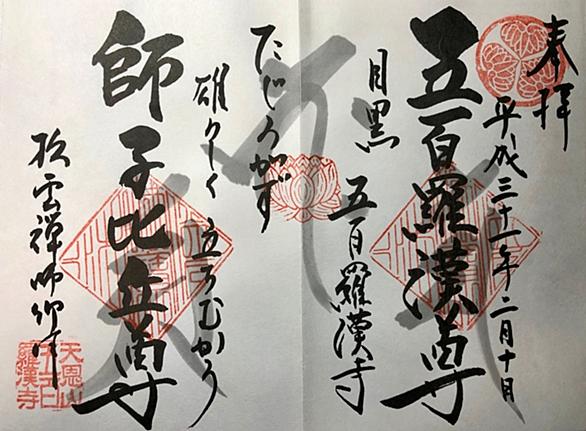 奉拝
平成三十一年二月十日
五百羅漢尊
目黒 五百羅漢寺
たじろがず
雄々しく立ちむかう
師子比丘尊
松雲禅師御作
天恩山
五百
羅漢寺